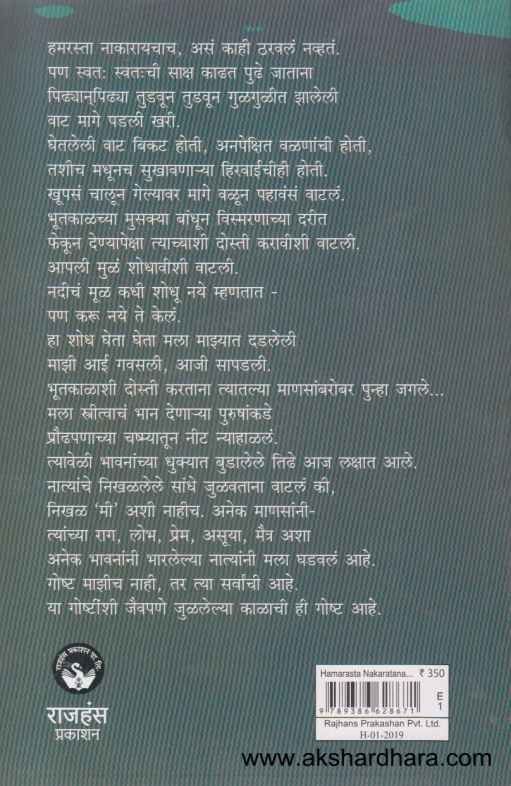 हमरस्ता नाकारायचाच, असं काही ठरवलं नव्हतं.
पण स्वतः स्वतःची साक्ष काढत पुढे जाताना
पिढ्यान्‌पिढ्या तुडवून तुडवून गुळगुळीत झालेली
वाट मागे पडली खरी.
घेतलेली वाट बिकट होती, अनपेक्षित वळणांची होती,
तशीच मधूनच सुखावणाऱ्या हिरवाईचीही होती.
खूपसं चालून गेल्यावर मागे वळून पहावंसं वाटलं.
भूतकाळच्या मुसक्या बांधून विस्मरणाच्या दरीत
फेकून देण्यापेक्षा त्याच्याशी दोस्ती करावीशी वाटली.
आपली मुळं शोधावीशी वाटली.
नदीचं मूळ कधी शोधू नये म्हणतात -
पण करू नये ते केलं.
हा शोध घेता घेता मला माझ्यात दडलेली
माझी आई गवसली, आजी सापडली.
भूतकाळाशी दोस्ती करताना त्यातल्या माणसांबरोबर पुन्हा जगले...
मला स्त्रीत्वाचं भान देणाऱ्या पुरुषांकडे
प्रौढपणाच्या चष्म्यातून नीट न्याहाळलं.
त्यावेळी भावनांच्या धुक्यात बुडालेले तिढे आज लक्षात आले.
नात्यांचे निखळलेले सांधे जुळवताना वाटलं की,
निखळ ‘मी’ अशी नाहीच. अनेक माणसांनी-
त्यांच्या राग, लोभ, प्रेम, असूया, मैत्र अशा
अनेक भावनांनी भारलेल्या नात्यांनी मला घडवलं आहे.
गोष्ट माझीच नाही, तर त्या सर्वांची आहे.
या गोष्टींशी जैवपणे जुळलेल्या काळाची ही गोष्ट आहे.
राजहंस प्रकाशन प्रा. लि.
राजहंस
प्रकाशन
Hamarasta Nakaratana... ₹ 350
E
1
9 789386 628671
Rajhans Prakashan Pvt. Ltd.
H-01-2019
www.akshardhara.com